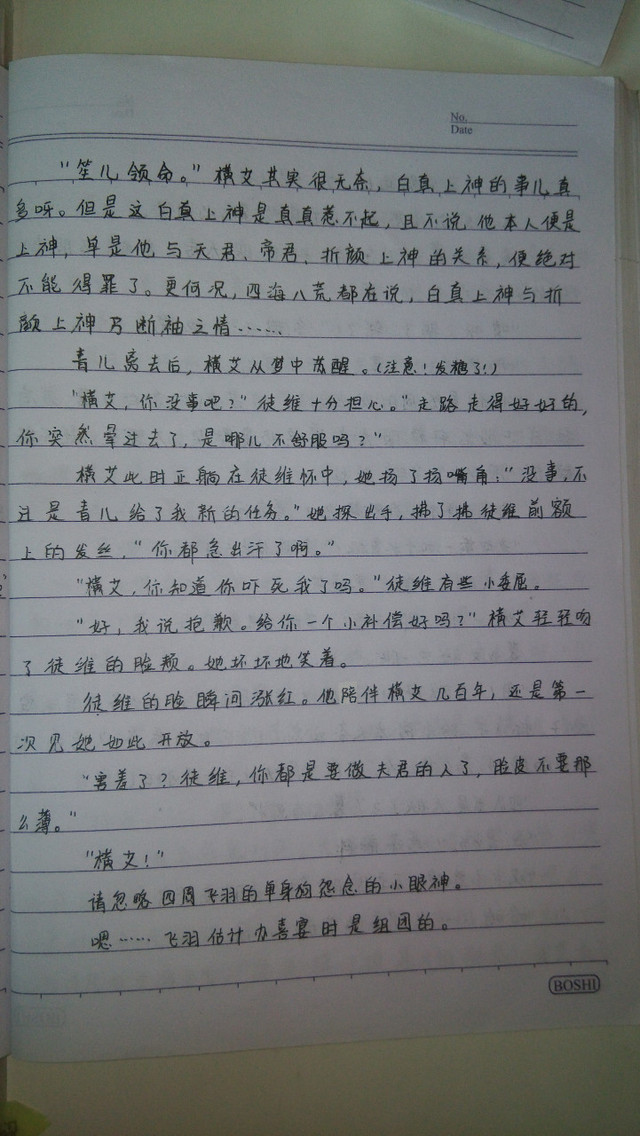 No.
Date
“笙儿领命。”横艾其实很无奈，白真上神的事儿真
多呀。但是这白真上神是真真惹不起，且不说他本人便是
上神，单是他与天君、帝君、折颜上神的关系，便绝对
不能得罪了。更何况，四海八荒都在说，白真上神与折
颜上神乃断袖之情……
青儿离去后，横艾从梦中苏醒。（注意！发糖了！）
“横艾，你没事吧？”徒维十分担心。“走路走得好好的，
你突然晕过去了，是哪儿不舒服吗？”
横艾此时正躺在徒维怀中，她扬了扬嘴角：“没事，不
过是青儿给了我新的任务。”她探出手，拂了拂徒维前额
上的发丝，“你都急出汗了啊。”
“横艾，你知道你吓死我了吗。”徒维有些小委屈。
“好，我说抱歉。给你一个小补偿好吗？”横艾轻轻吻
了徒维的脸颊。她坏坏地笑着。
徒维的脸瞬间涨红。他陪伴横艾几百年，还是第一
次见她如此开放。
“害羞了？徒维，你都是要做夫君的人了，脸皮不要那
么薄。”
“横艾！”
请忽略四周飞羽的单身狗怨念的小眼神。
嗯……飞羽估计办喜宴时是组团的。
BOSHI